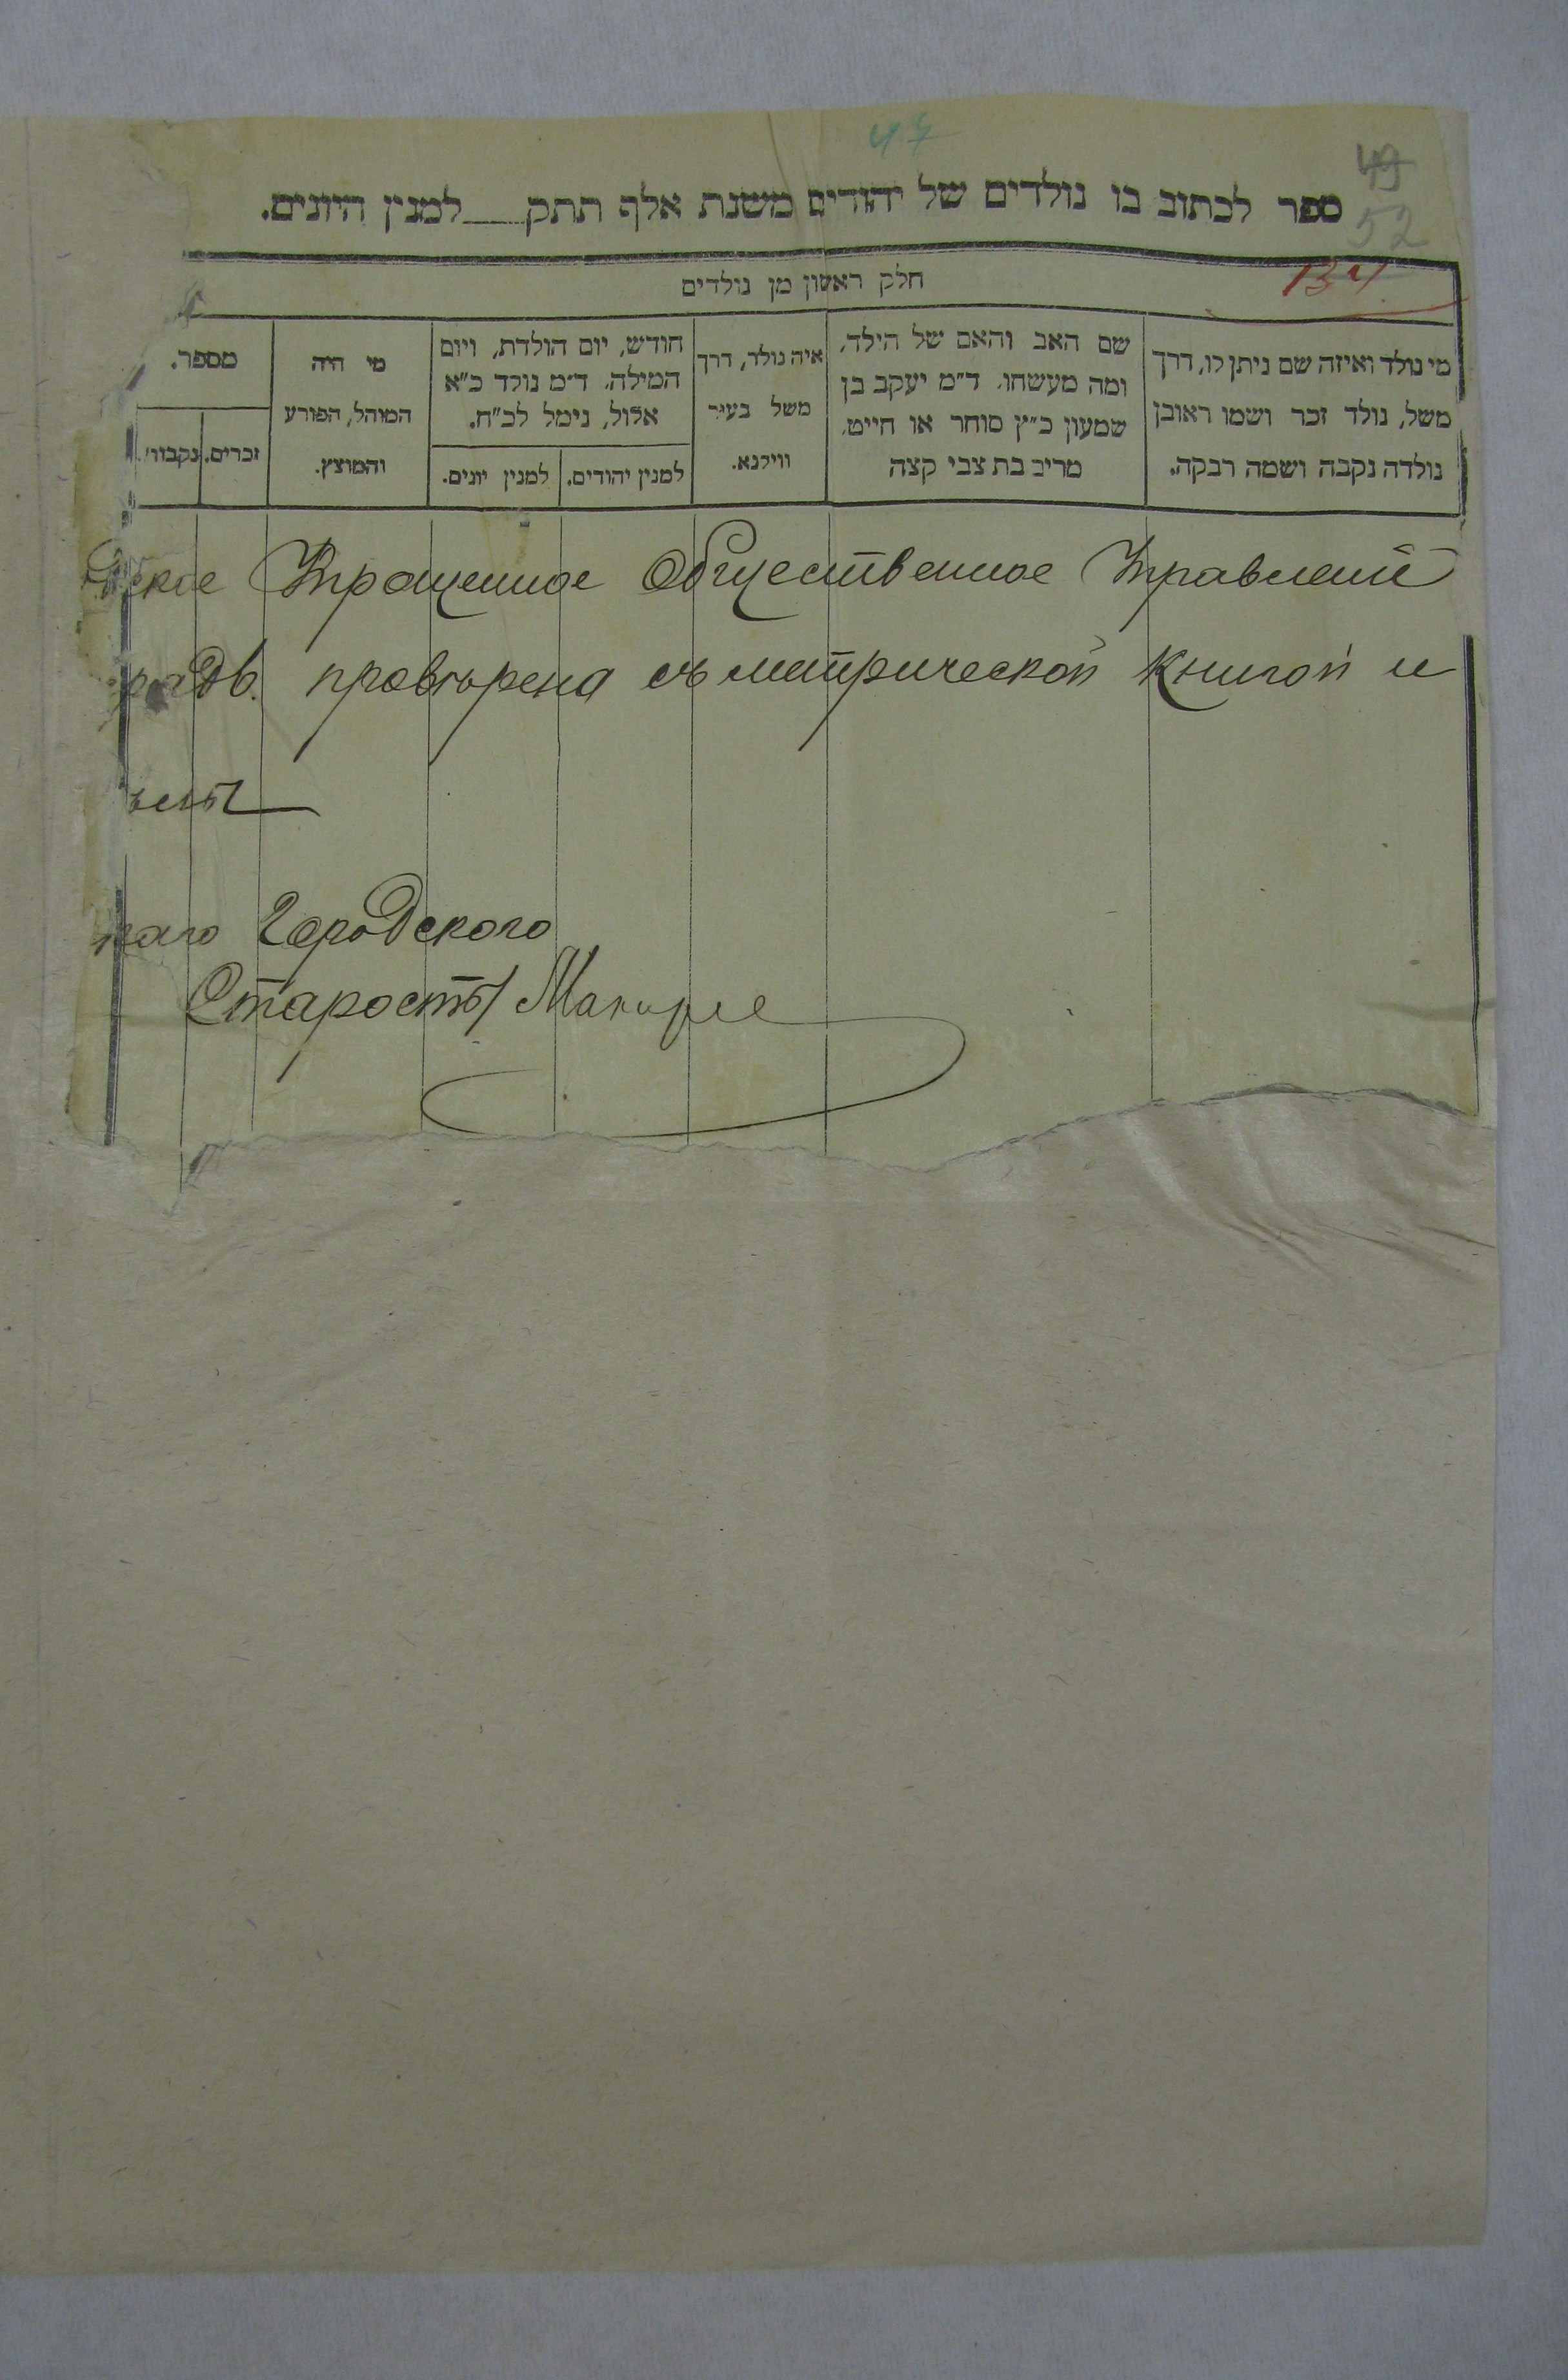 47
49
52
ספר לכתוב בו נולדים של יהודים משנת אלף תתק___למנין היונים.
134
חלק ראשון מן נולדים
מי נולד ואיזה שם ניתן לו, דרך
משל, נולד זכר ושמו ראובן
נולדה נקבה ושמה רבקה.
שם האב והאם של הילד,
ומה מעשהו. ד"מ יעקב בן
שמעון כ"ץ סוחר או חייט,
מרים בת צבי קצה
איה נולד, דרך
משל בעיר
ווילנא.
חודש, יום הולדת, ויום
המילה. ד"מ נולד כ"א
אלול, נימל לכ"ח.
למנין יהודים.
למנין יונים.
מי היה
המוהל, הפורע
והמוצץ.
מספר.
זכרים.
נקבות.
ское Упрощенное Общественное Управленіе
провѣрена съ метрической книгой и
наго Городского
Старосты